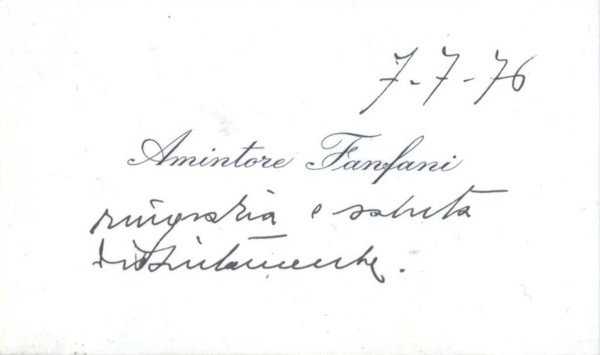 7-7-76
Amintore Fanfani
ringrazia e saluta
distintamente.